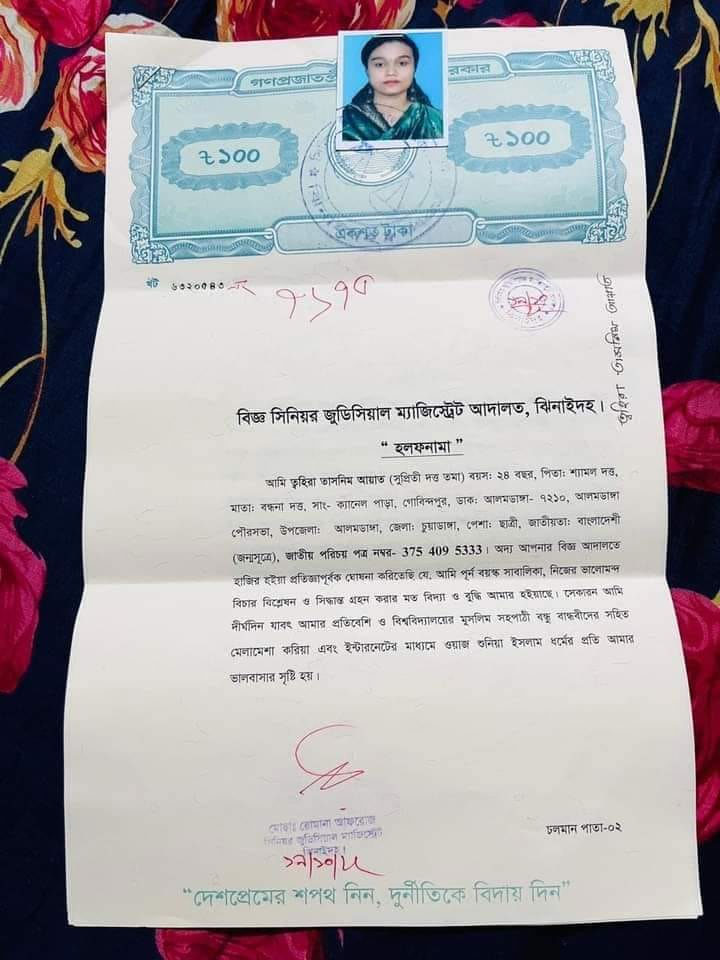 গণপ্রজাতন্ত্রী রকার
৳১০০
৳১০০
একশত টাকা
খট ৬৩২০৫৪৩
৭১৭৫
তুহিরা তাসনিম আয়াত
বিজ্ঞ সিনিয়র জুডিসিয়াল ম্যাজিস্ট্রেট আদালত, ঝিনাইদহ।
“ হলফনামা ”
আমি তুহিরা তাসনিম আয়াত (সুপ্রিতী দত্ত তমা) বয়স: ২৪ বছর, পিতা: শ্যামল দত্ত,
মাতা: বন্ধনা দত্ত, সাং- ক্যানেল পাড়া, গোবিন্দপুর, ডাক: আলমডাঙ্গা- ৭২১০, আলমডাঙ্গা
পৌরসভা, উপজেলা: আলমডাঙ্গা, জেলা: চুয়াডাঙ্গা, পেশা: ছাত্রী, জাতীয়তা: বাংলাদেশী
(জন্মসূত্রে), জাতীয় পরিচয় পত্র নম্বর- 375 409 5333। অদ্য আপনার বিজ্ঞ আদালতে
হাজির হইয়া প্রতিজ্ঞাপূর্বক ঘোষনা করিতেছি যে, আমি পূর্ন বয়স্ক সাবালিকা, নিজের ভালোমন্দ
বিচার বিশ্লেষন ও সিদ্ধান্ত গ্রহন করার মত বিদ্যা ও বুদ্ধি আমার হইয়াছে। সেকারন আমি
দীর্ঘদিন যাবৎ আমার প্রতিবেশি ও বিশ্ববিদ্যালয়ের মুসলিম সহপাঠী বন্ধু বান্ধবীদের সহিত
মেলামেশা করিয়া এবং ইন্টারনেটের মাধ্যমে ওয়াজ শুনিয়া ইসলাম ধর্মের প্রতি আমার
ভালবাসার সৃষ্টি হয়।
মোছাঃ রোমানা আফরোজ
সিনিয়র জুডিসিয়াল ম্যাজিস্ট্রেট
ঝিনাইদহ।
চলমান পাতা-০২
“দেশপ্রেমের শপথ নিন, দুর্নীতিকে বিদায় দিন”